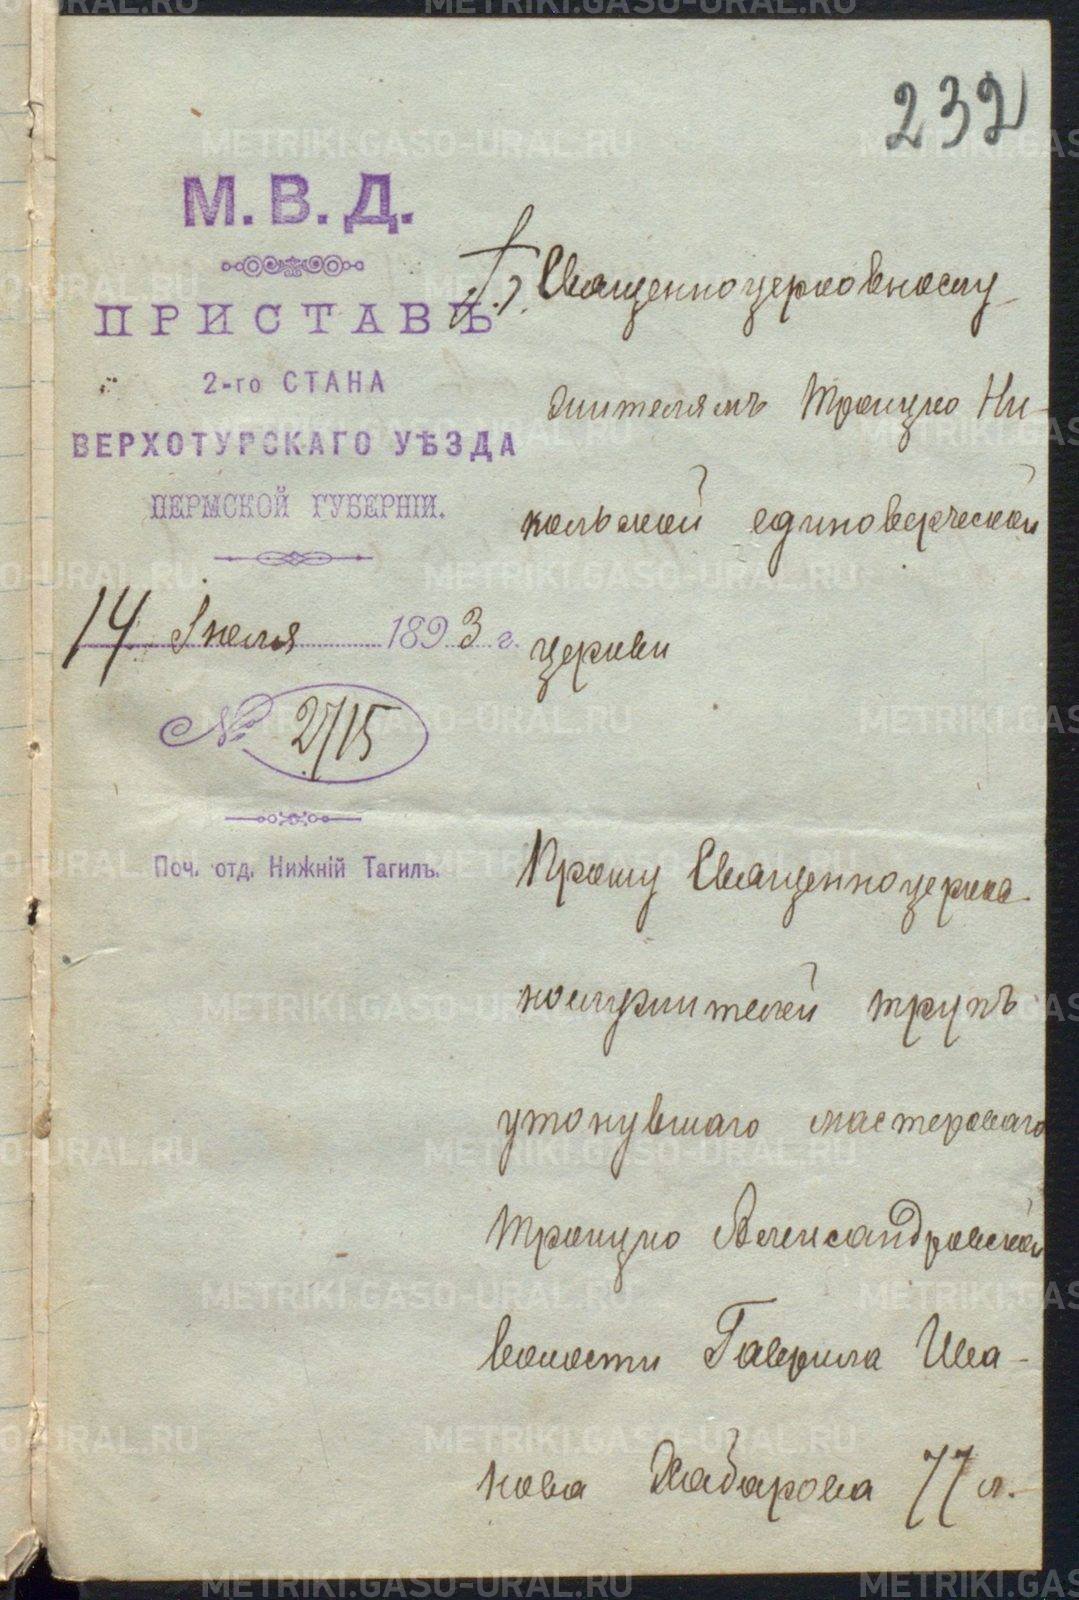 232
М. В. Д.
ПРИСТАВЪ
2-го СТАНА
ВЕРХОТУРСКАГО УѢЗДА
ПЕРМСКОЙ ГУБЕРНІИ.
14 Іюля 1893 г.
№ 2715
Поч. отд. Нижній Тагилъ.
Священноцерковнослу-
жителямъ Троицко Ни-
кольской единоверческой
церкви
Прошу Священноцерков-
нослужителей трупъ
утонувшаго мастероваго
Троицко Александровской
волости Гаврила Ива-
нова Хабарова 77 л.
METRIKI.GASO-URAL.RU